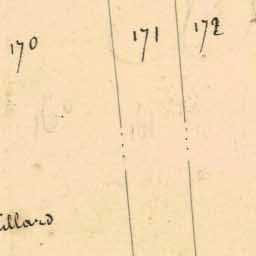 170 171 172
illard